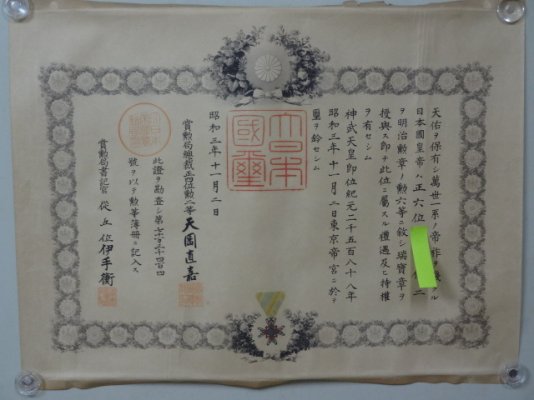 天佑ヲ保有シ萬世一系ノ帝祚ヲ ル
日本國皇帝ハ正六位
ヲ明治勲章ノ勲六等ニ敘シ瑞寶章ヲ
授與ス即チ此位ニ屬スル禮遇及ヒ特權
ヲ有セシム
神武天皇即位紀元二千五百八十八年
昭和三年十一月二日東京帝宮ニ於テ
璽ヲ鈐セシム
大日本國璽
昭和三年十一月二日
賞勲局總裁正四位勲二等天岡直嘉
此證ヲ勘査シ第 四
號ヲ以テ勲等簿冊ニ記入ス
賞勲局書記官 從五位伊手衡